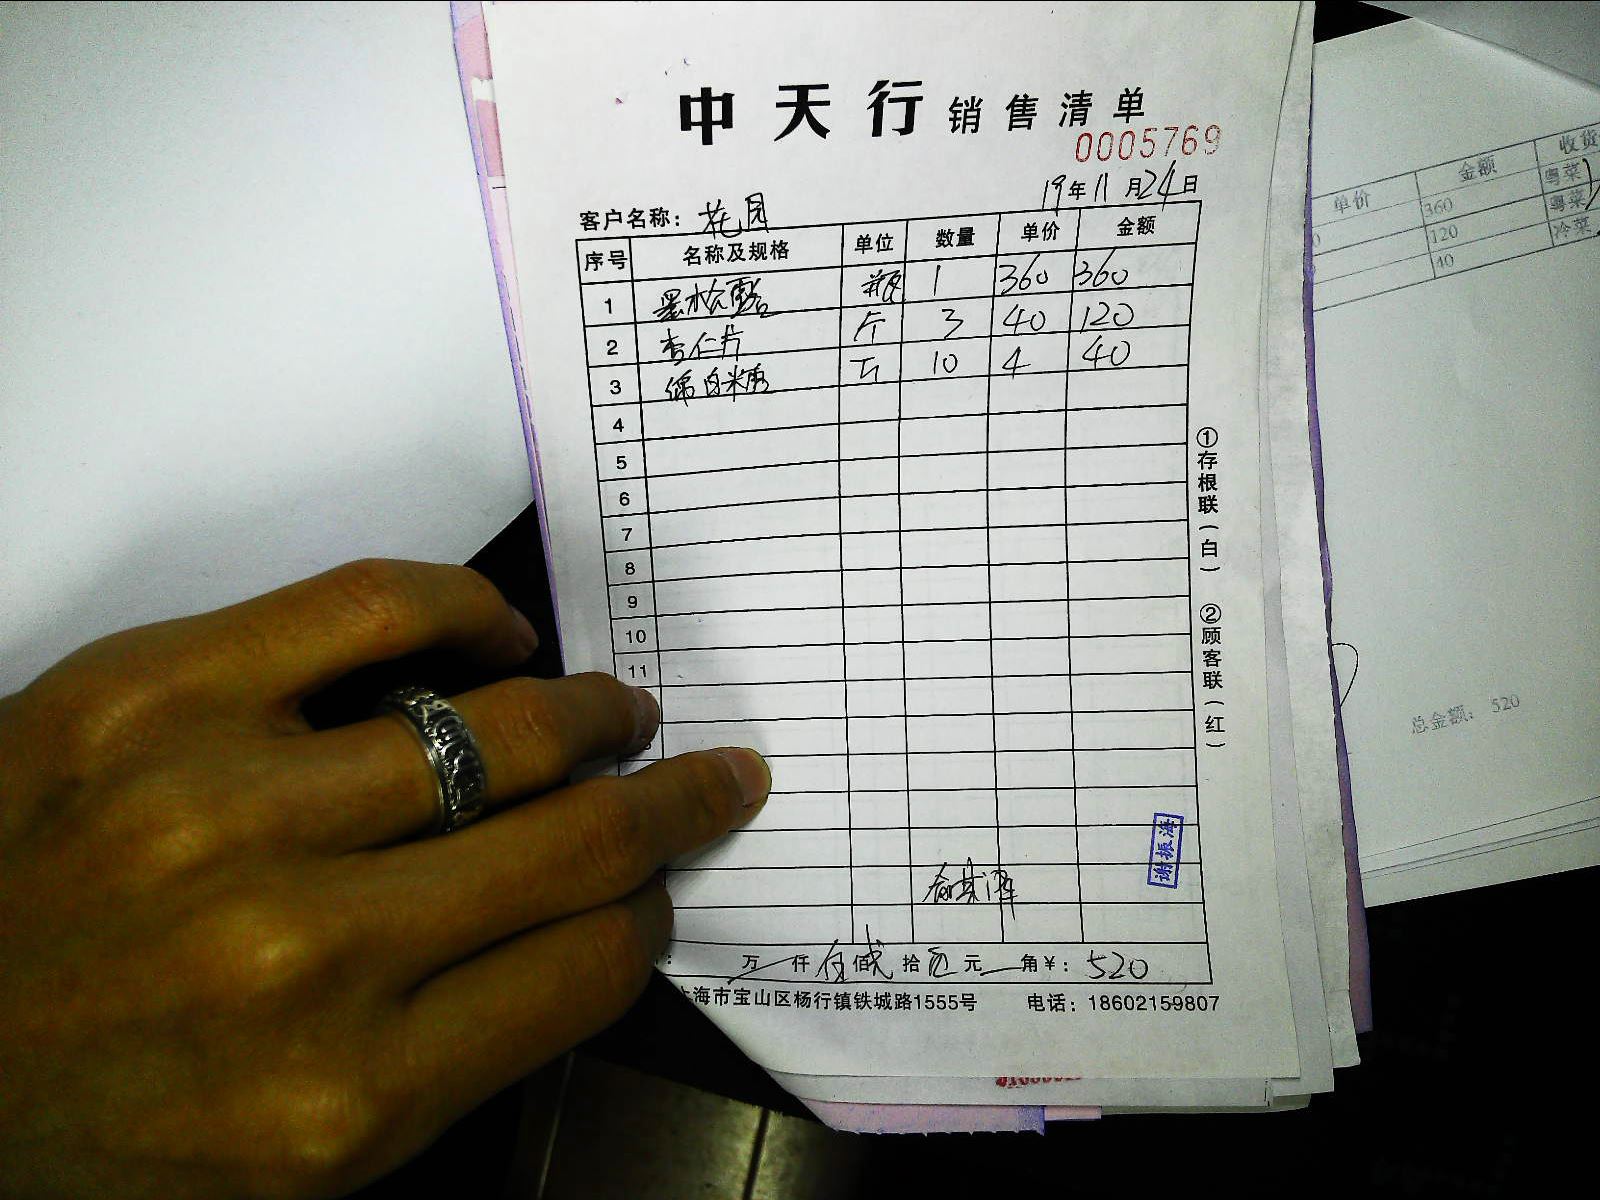 中天行 销售清单
0005769
19年11月24日
客户名称: 花园
序号 名称及规格 单位 数量 单价 金额
1 瓶 1 360 360
2 杏仁片 斤 3 40 120
3 绵白糖 斤 10 4 40
4
5
6
7
8
9
10
11
万 仟 伍佰 贰拾 元 角¥: 520
上海市宝山区杨行镇铁城路1555号 电话: 18602159807
①存根联(白) ②顾客联(红)
谢振海
单价 金额 收货
360 粤菜
120 粤菜
40 冷菜
总金额: 520